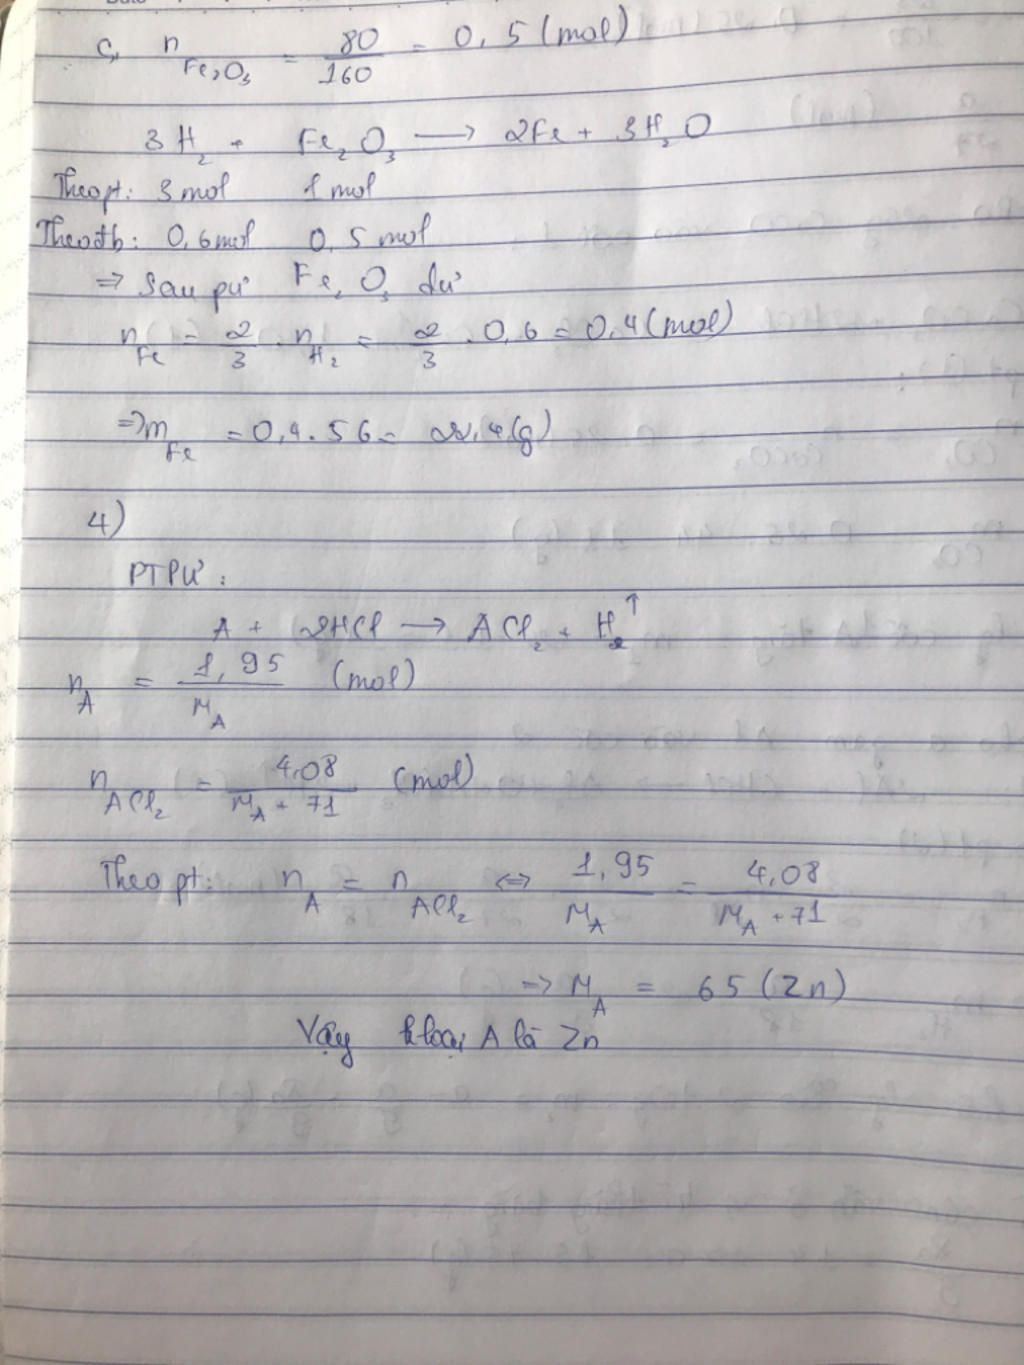 c, n Fe₂O₃ = 80/160 = 0,5 (mol)
3H₂ + Fe₂O₃ ⟶ 2Fe + 3H₂O
Theo pt: 3mol 1mol
Theo đb: 0,6mol 0,5mol
⇒ Sau pư Fe₂O₃ dư
n Fe = 2/3 . n H₂ = 2/3 . 0,6 = 0,4 (mol)
⇒ m Fe = 0,4 . 56 = 22,4 (g)
4)
PTPƯ :
A + 2HCl ⟶ ACl₂ + H₂↑
n A = 1,95/M A (mol)
n ACl₂ = 4,08/(M A + 71) (mol)
Theo pt: n A = n ACl₂ ⇔ 1,95/M A = 4,08/(M A + 71)
⇒ M A = 65 (Zn)
Vậy kloại A là Zn